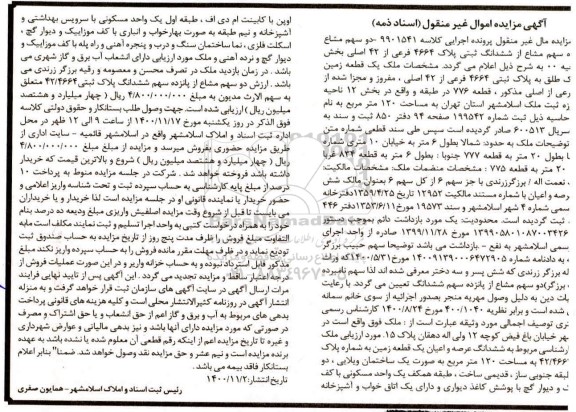 آگهی مزایده اموال غیر منقول (اسناد ذمه)
مزایده مال غیر منقول پرونده اجرایی کلاسه ۹۹۰۱۵۴۱ -دو سهم مشاع
سهم مشاع از ششدانگ ثبتی پلاک ۴۶۶۴ فرعی از ۴۲ اصلی بخش
به شرح ذیل اعلام می گردد. مشخصات ملک یک قطعه زمین
طلق به پلاک ثبتی ۴۶۶۴ فرعی از ۴۲ اصلی ، مفروز و مجزا شده از
فرعی از اصلی مذکور ، قطعه ۷۷۶ در طبقه و واقع در بخش ۱۲ ناحیه
حوزه ثبت ملک اسلامشهر استان تهران به مساحت ۱۲۰ متر مربع به نام
حاسبه ذیل ثبت شماره ۱۹۹۵۴۲ صفحه ۹۴ دفتر ۸۵۰ ثبت و سند به
سریال ۶۰۰۵۱۳ صادر گردیده است سپس طی سند قطعی شماره متن
توضیحات ملک به حدود: شمالا بطول ۶ متر به خیابان ۱۰ متری شرقا
بطول ۲۰ متر به قطعه ۷۷۷ جنوبا : بطول ۶ متر به قطعه ۸۳۴ غربا
۲۰ متر به قطعه ۷۷۵ : مشخصات منضمات ملک: مشخصات مالکیت:
نعمت اله / برزگرزندی با جز سهم ۶ از کل سهم ۶ بعنوان مالک شش
عرصه و اعیان با شماره مستند مالکیت ۱۲۹۵۲ تاریخ ۱۳۵۹/۴/۲۵دفترخانه
رسمی شماره ۴ شهر اسلامشهر و سند ۱۹۵۷۳ مورخ ۱۳۵۳/۶/۱۱دفتر ۴۴۶
ثبت گردیده است. محدودیت: یک مورد بازداشت دائم بموجب دستور
۱۳۹۹۰۵۸۰۱۰۸۷۰۰۳۴۲۶ مورخ ۱۳۹۹/۱۱/۲۸ صادره از واحد اجرای
رسمی اسلامشهر به نفع - بازداشت می باشد توضیحا سهم حبیب برزگر
به دادنامه شماره ۱۴۰۰۹۱۳۹۰۰۰۶۴۷۲۹۰۵ مورخ ۱۴۰۰/۵/۳۱که وراث
اله برزگر زرندی که شش پسر و سه دختر معرفی شده اند لذا سهم نامبرده
برزگر)دو سهم مشاع از پانزده سهم ششدانگ تعیین می گردد. با رعایت
بابت دین به دلیل وصول مهریه منجر بصدور اجرائیه از سوی خانم سمانه
شده است و برابر نظریه ۴۰۰/۱۰۴۰ مورخ ۱۴۰۰/۸/۲۴ کارشناس رسمی
توصیف اجمالی مورد وثیقه عبارت است از : ملک فوق واقع است در
خیابان باغ فیض کوچه ۱۲ وله اله دهقان پلاک ۱۵. مورد ارزیابی ملک
کارشناسی مربوط به ششدانگ عرصه و اعیان یک قطعه زمین به شماره پلاک
۴۲/۴۶۶۴ به مساحت ۱۲۰ متر مربع به صورت یک ساختمان ویلایی ، دو
طبقه جنوبی ساز ، قدیمی ساخت ، طبقه همکف یک واحد مسکونی با کف
و دیوار گچ با پوشش کاغذ دیواری و دارای یک اتاق خواب و آشپزخانه
اوپن با کابینت ام دی اف ، طبقه اول یک واحد مسکونی با سرویس بهداشتی و
آشپزخانه و نیم طبقه به صورت بهارخواب و انباری با کف موزاییک و دیوار گچ ،
اسکلت فلزی ، نما ساختمان سنگ و درب و پنجره آهنی و راه پله با کف موزاییک و
دیوار گچ و نرده آهنی و ملک مورد ارزیابی دارای انشعاب آب برق و گاز شهری می
باشد . در زمان بازدید ملک در تصرف محسن و معصومه و رقیه برزگر زرندی می
باشد . ارزش دو سهم مشاع از پانزده سهم ششدانگ پلاک ثبتی ۴۲/۴۶۶۴ متعلق
به سهم الارث مدیون به مبلغ ۴/۸۰۰/۰۰۰/۰۰۰ ریال ( چهار میلیارد و هشتصد
میلیون ریال ) ارزیابی شده است. جهت وصول طلب بستانکار و حقوق دولتی کلاسه
فوق الذکر در روز یکشنبه مورخ ۱۴۰۰/۱۱/۱۷ از ساعت ۹ الی ۱۲ ظهر در محل
اداره ثبت اسناد و املاک اسلامشهر واقع در اسلامشهر قائمیه - سایت اداری از
طریق مزایده حضوری بفروش میرسد و مزایده از مبلغ مبلغ ۴/۸۰۰/۰۰۰/۰۰۰
ریال ( چهار میلیارد و هشتصد میلیون ریال ) شروع و بالاترین قیمت که خریدار
داشته باشد فروخته خواهد شد . شرکت در جلسه مزایده منوط به پرداخت ۱۰
درصد از مبلغ پایه کارشناسی به حساب سپرده ثبت و تحت شناسه واریز اعلامی و
حضور خریدار یا نماینده قانونی او در جلسه مزایده است لذا خریدار و یا خریداران
می بایست تا قبل از شروع وقت مزایده اصلفیش واریزی مبلغ ودیعه ده درصد بنام
خود را به همراه درخواست کتبی به واحد اجرا تسلیم و ثبت نمایند مکلف است مابه
التفاوت مبلغ فروش را ظرف مدت پنج روز از تاریخ مزایده به حساب صندوق ثبت
تودیع نماید و در ظرف مهلت مقرر مانده فروش را به حساب سپرده واریز نکند مبلغ
مذکور قابل استرداد نبوده و به حساب خزانه واریز و در این صورت عملیات فروش از
درجه اعتبار ساقط و مزایده تجدید می گردد. این آگهی پس از تایید نهایی فرایند
مزایده ارسال آگهی در سایت آگهی های سازمان ثبت قرار خواهد گرفت و به منزله
انتشار آگهی در روزنامه کثیرالانتشار محلی است و کلیه هزینه های قانونی پرداخت
بدهی های مربوط به آب و برق و گاز اعم از حق انشعاب و یا حق اشتراک و مصرف
در صورتی که مورد مزایده دارای آنها باشد و نیز بدهی مالیاتی و عوارض شهرداری
و غیره تا تاریخ مزایده اعم از اینکه رقم قطعی آن معلوم شده یا نشده باشد به عهده
برنده مزایده است و نیم عشر و حق مزایده نقد وصول خواهد شد. ضمنا" بنابر اعلام
بستانکار فاقد بیمه می باشد.
تاریخ انتشار:۱۴۰۰/۱۱/۲
رئیس ثبت اسناد و املاک اسلامشهر - همایون صفری